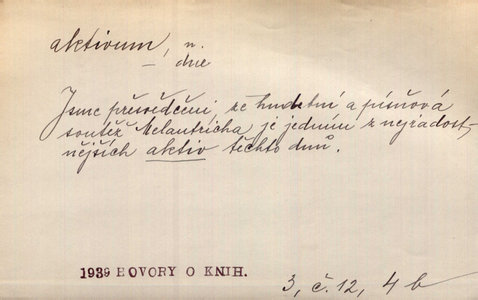 aktivum, n.
– dne
Jsme přesvědčeni, že hudební a písňová
soutěž Melantricha je jedním z nejradost-
nějších aktiv těchto dnů.
1939 HOVORY O KNIH.
3, č. 12, 4 b